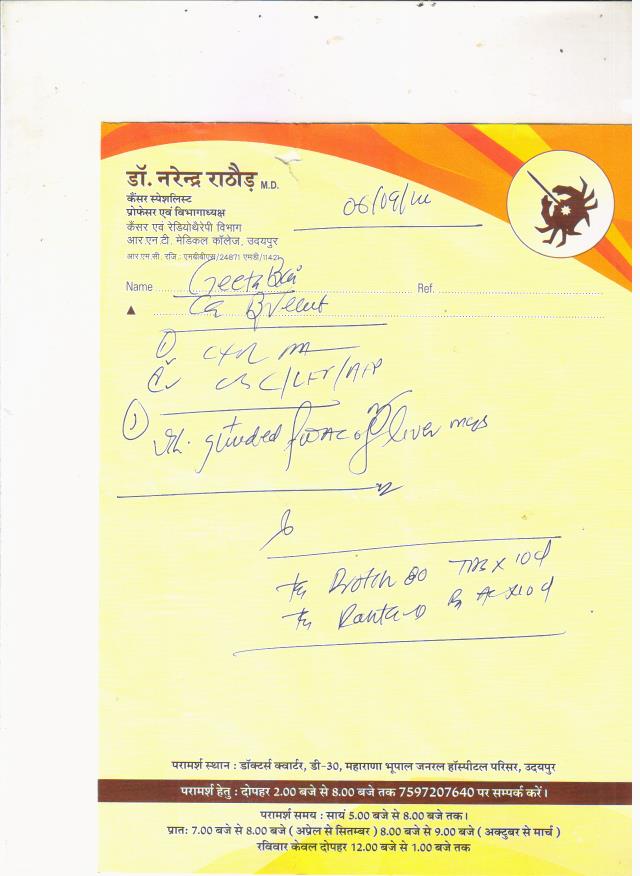 डॉ. नरेन्द्र राठौड़ M.D.
कैंसर स्पेशलिस्ट
प्रोफेसर एवं विभागाध्यक्ष
कैंसर एवं रेडियोथैरेपी विभाग
आर.एन.टी. मेडिकल कॉलेज, उदयपुर
आर.एम.सी. रजि : एमबीबीएस/24871 एमडी/11421
06/09/
Name Geeta Bai Ref.
Ca
CXR PA
CBC/LFT/AFP
guided FNAC of liver
TDS x 10d
परामर्श स्थान : डॉक्टर्स क्वार्टर, डी-30, महाराणा भूपाल जनरल हॉस्पीटल परिसर, उदयपुर
परामर्श हेतु : दोपहर 2.00 बजे से 8.00 बजे तक 7597207640 पर सम्पर्क करें।
परामर्श समय : सायं 5.00 बजे से 8.00 बजे तक।
प्रातः 7.00 बजे से 8.00 बजे ( अप्रेल से सितम्बर ) 8.00 बजे से 9.00 बजे ( अक्टुबर से मार्च )
रविवार केवल दोपहर 12.00 बजे से 1.00 बजे तक